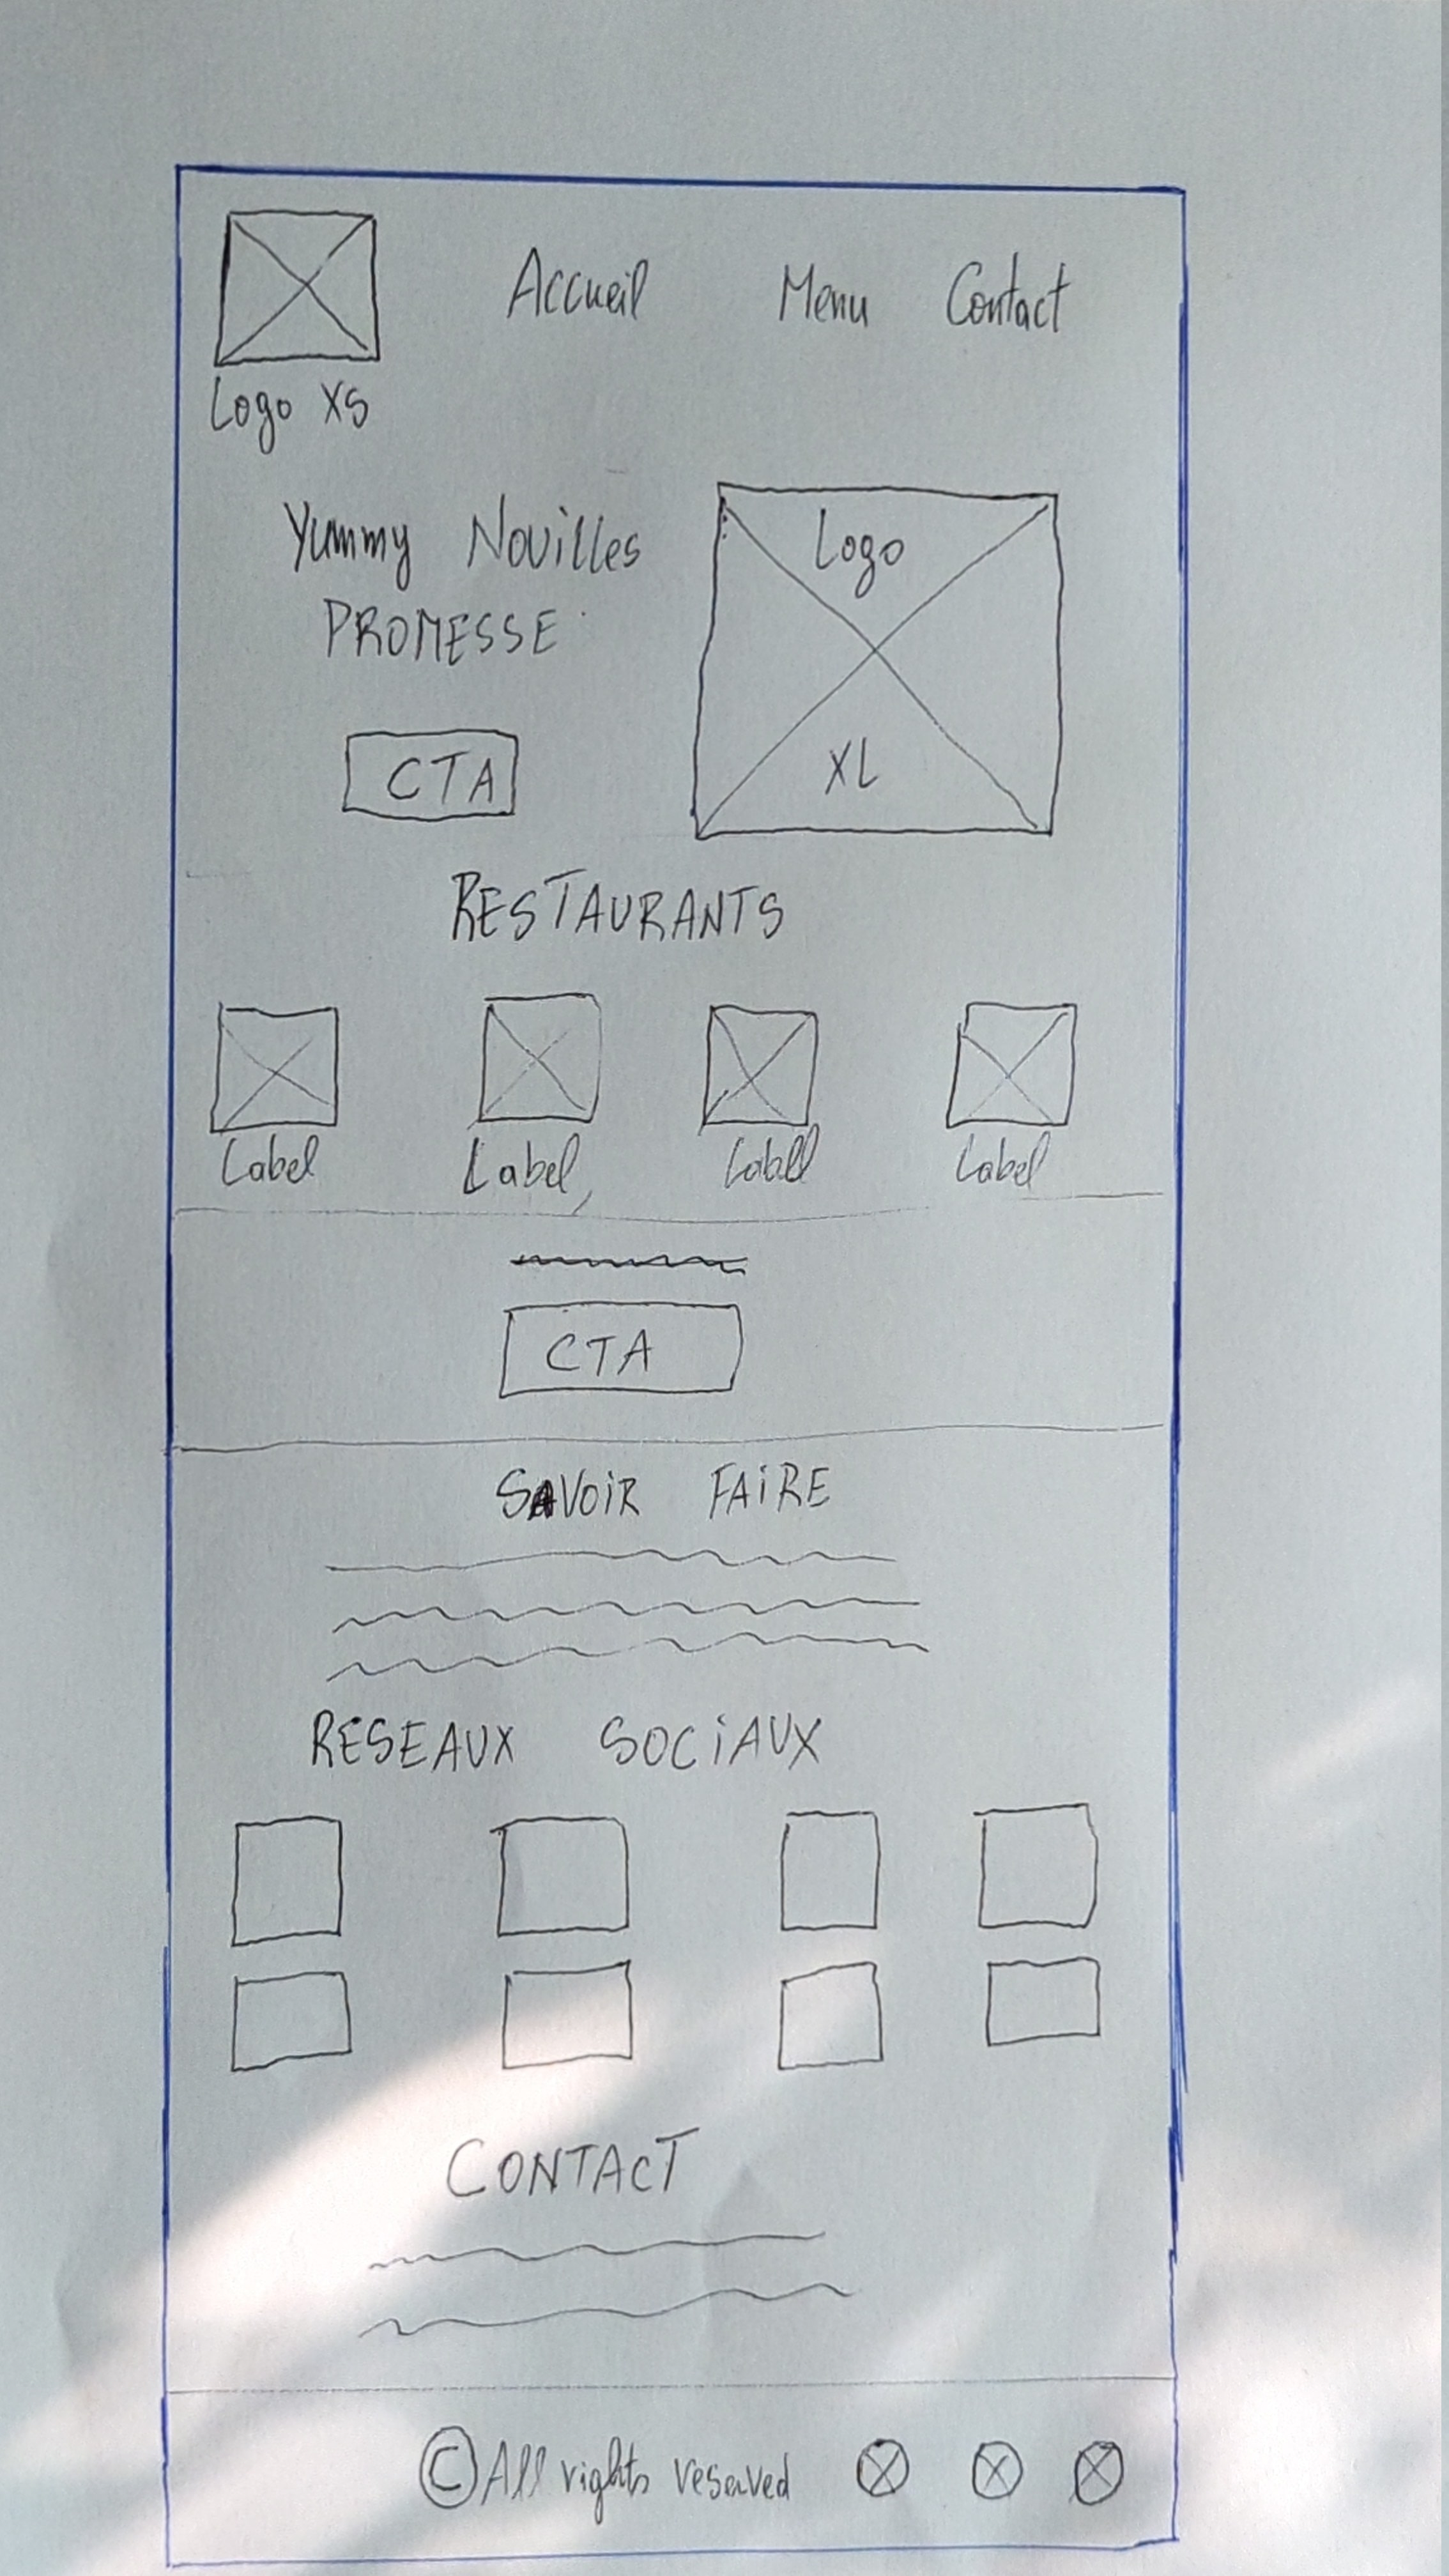 Accueil Menu Contact
Logo XS
Yummy Nouilles
PROMESSE
Logo
XL
CTA
RESTAURANTS
Label Label Labell Label
CTA
SAVOIR FAIRE
RESEAUX SOCIAUX
CONTACT
© All rights reserved